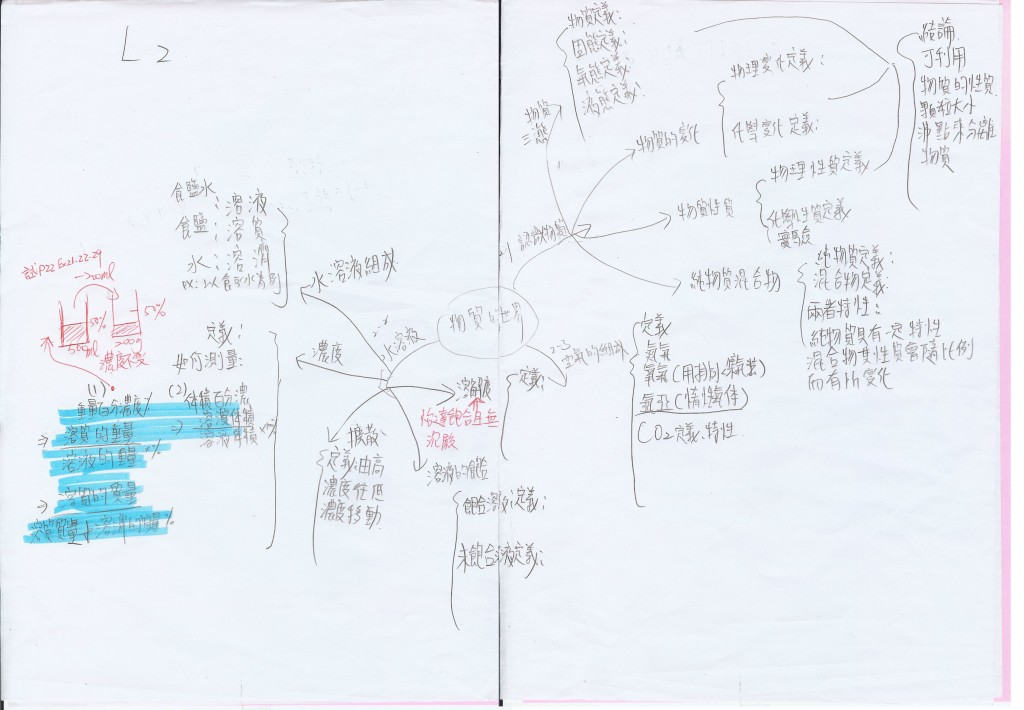 L2
物質的世界
2-1 認識物質
物質
三態
物質定義:
固態定義:
氣態定義:
液態定義:
物質的變化
物理變化定義:
化學變化定義:
物質性質
物理性質定義
化學性質定義
實驗
結論
可利用
物質的性質
顆粒大小
沸點來分離
物質
純物質混合物
純物質定義:
混合物定義:
兩者特性:
純物質具有一定特性
混合物其性質會隨比例
而有所變化
2-3
空氣的組成
定義
氮氣
氧氣
CO2定義、特性
水溶液
水溶液組成
食鹽水:溶液
食鹽:溶質
水:溶劑
濃度
定義:
如何測量:
(1)
重量百分濃度%
⇒ 溶質的重量
溶液的重量 %
⇒ 溶質的質量
(2)
體積百分濃
⇒ 溶質體積
溶液體積
試P22 Ex21.22.29
→200ml
50%
50%
500ml
200g
濃度不變
擴散
定義:由高
濃度往低
濃度移動
溶解度
定義:
恰達飽合且無
沉殿
溶液的飽合
飽合溶液定義:
未飽合溶液定義: